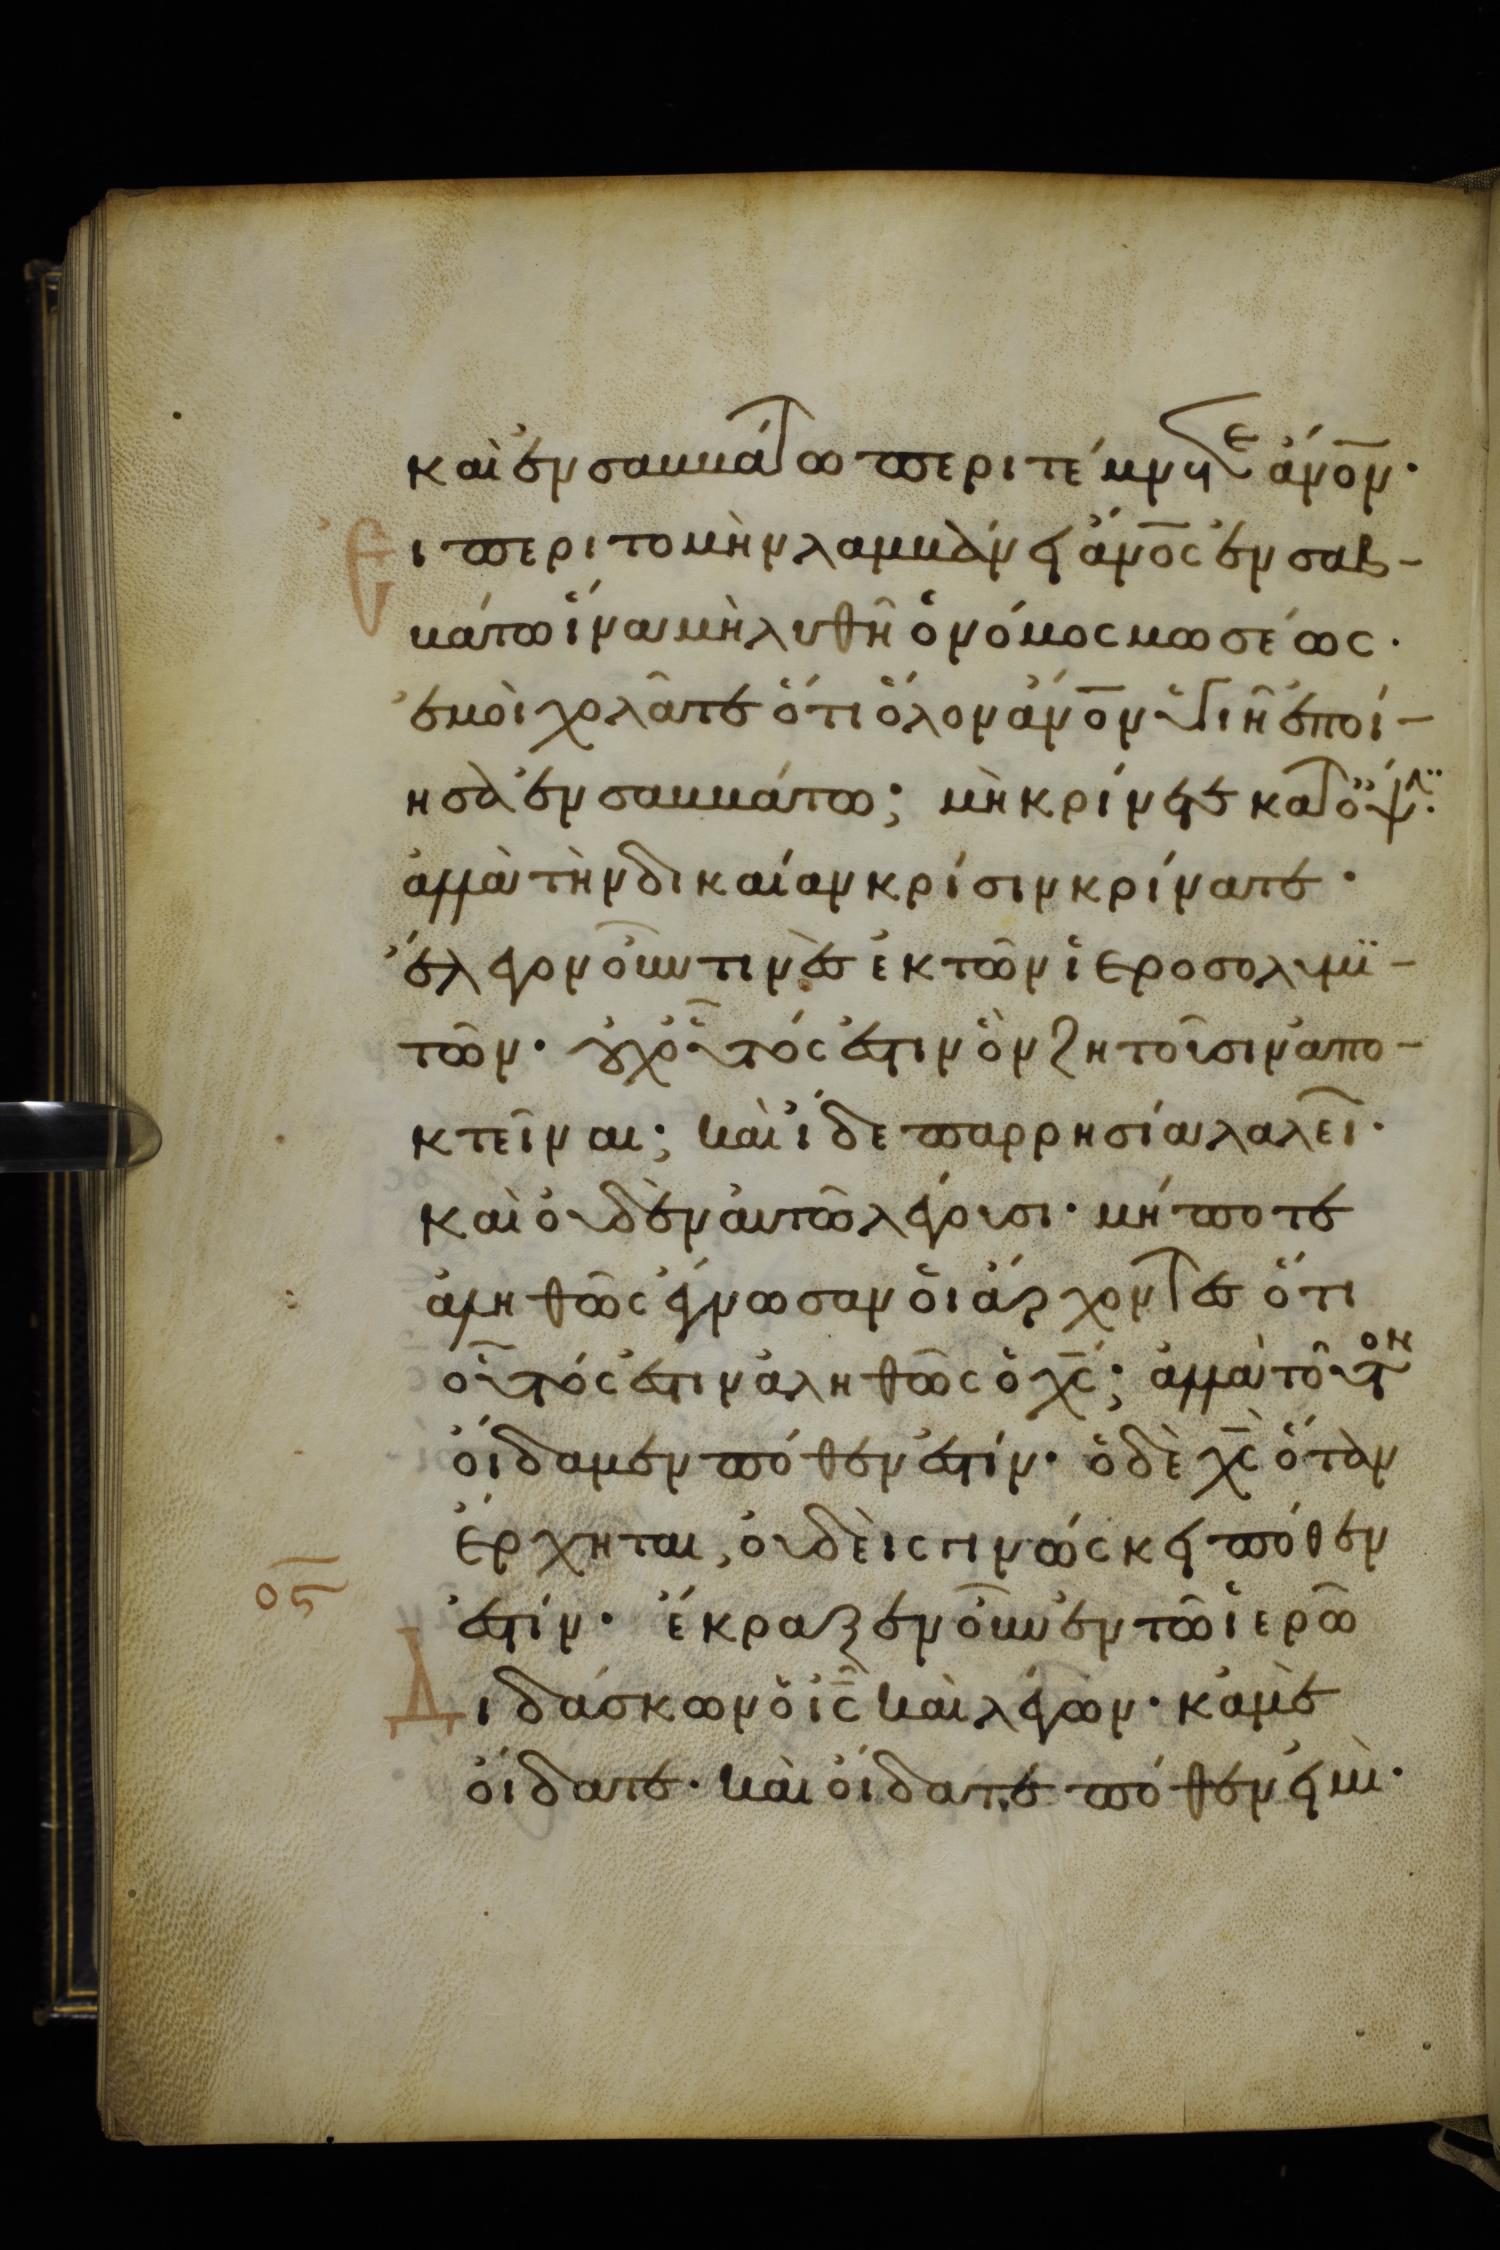 καὶ ἐν σαββάτω περιτέμνετε ἄνον·
Ει περιτομὴν λαμβάνει ἄνος ἐν σαβ-
βάτω ἵνα μὴ λυθῆ ὁ νόμος μωσέως·
ἐμοὶ χολᾶτε ὅτι ὅλον ἄνον ὑγιῆ ἐποί-
ησα ἐν σαββάτω; μὴ κρίνετε κατ ὄψιν·
ἀλλὰ τὴν δικαίαν κρίσιν κρίνατε·
ἔλεγον οὖν τινὲς ἐκ τῶν ἱεροσολυμϊ-
τῶν· οὐχ οὗτός ἐστιν ὃν ζητοῦσιν ἀπο-
κτεῖναι; καὶ ἴδε παρρησία λαλεῖ·
καὶ οὐδὲν αὐτῶ λέγουσι· μήποτε
ἀληθῶς ἔγνωσαν οἱ ἄρχοντες ὅτι
οὗτός ἐστιν ἀληθῶς ὁ χς; ἀλλὰ τοῦτον
οἴδαμεν πόθεν ἐστίν· ὁ δὲ χς ὅταν
ἔρχηται, οὐδεὶς γινώσκει πόθεν
ος
ἐστίν· ἔκραξεν οὖν ἐν τῶ ἱερῶ
Διδάσκων ὁ ις καὶ λέγων· κἀμὲ
οἴδατε· καὶ οἴδατε πόθεν εἰμὶ·